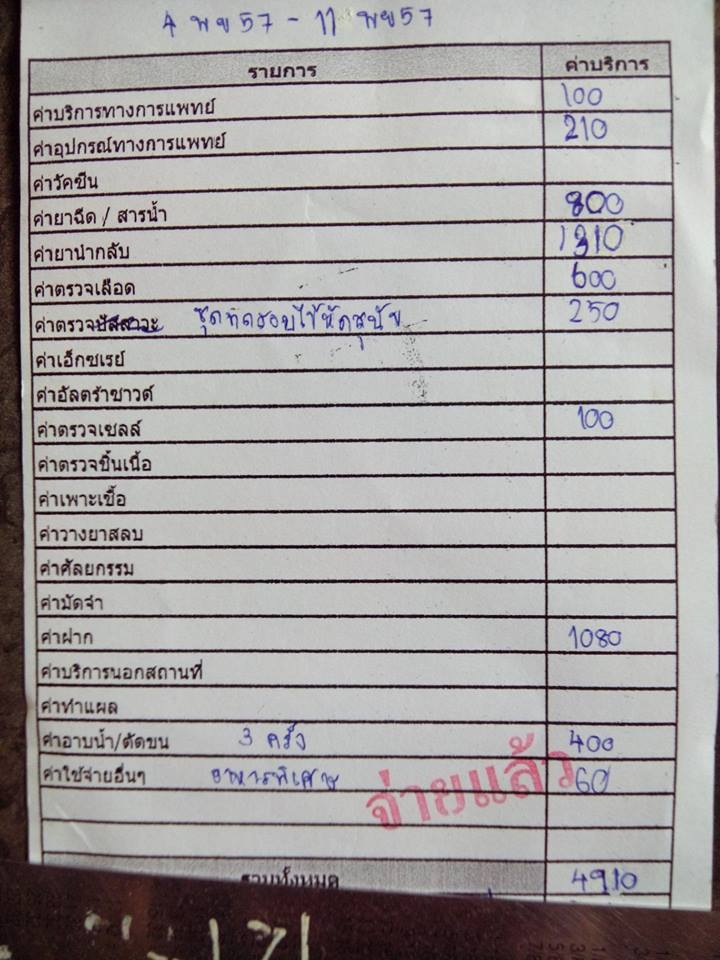 4 พย 57 - 11 พย 57
รายการ ค่าบริการ
ค่าบริการทางการแพทย์ 100
ค่าอุปกรณ์ทางการแพทย์ 210
ค่าวัคซีน
ค่ายาฉีด / สารน้ำ 800
ค่ายานำกลับ 1310
ค่าตรวจเลือด 600
ค่าตรวจปัสสาวะ ชุดทดสอบไข้หัดสุนัข 250
ค่าเอ็กซเรย์
ค่าอัลตร้าซาวด์
ค่าตรวจเซลล์ 100
ค่าตรวจชิ้นเนื้อ
ค่าเพาะเชื้อ
ค่าวางยาสลบ
ค่าศัลยกรรม
ค่ามัดจำ
ค่าฝาก 1080
ค่าบริการนอกสถานที่
ค่าทำแผล
ค่าอาบน้ำ/ตัดขน 3 ครั้ง 400
ค่าใช้จ่ายอื่นๆ อาหารพิเศษ 60
จ่ายแล้ว
รวมทั้งหมด 4910